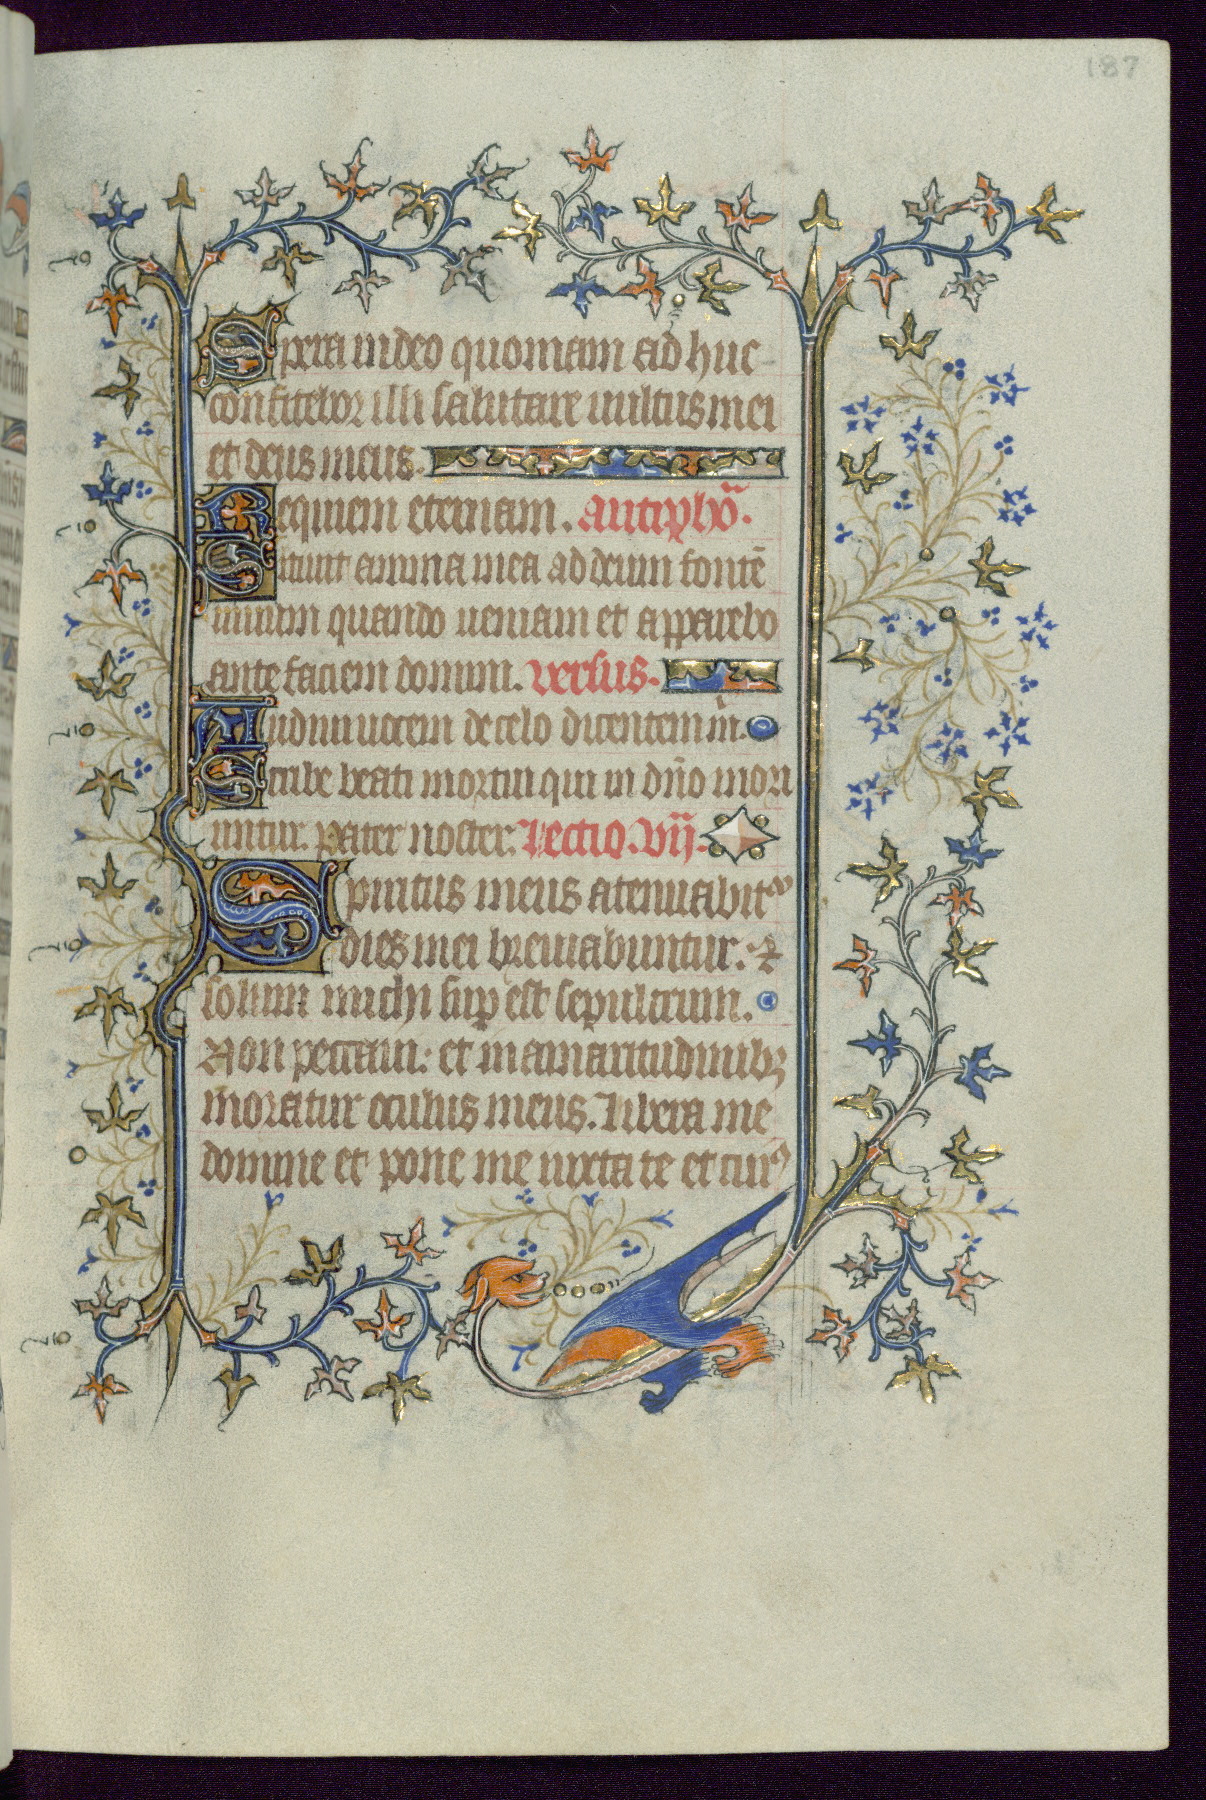 187
Spera in deo quoniam ad huc
confitebor illi salutare uultus mei
et deus meus.
Requiem eternam. Antiphõ.
Sitiuit anima mea ad deum fontẽ
uiuum quando ueniam et apparebo
ante faciem domini. Versus.
Audiui uocem de celo dicentem m̃.
Scribe beati mortui qui in dño mori
untur. pater noster. Lectio. vij.
Spiritus meus atenuabitᷣ
dies mei breuiabuntur. ⁊
solum michi sup est sepulcrum.
Non peccaui: et in amaritudinibꝫ
moratur oculus meus. Libera me
domine et pone me iuxta te et cuiꝰ